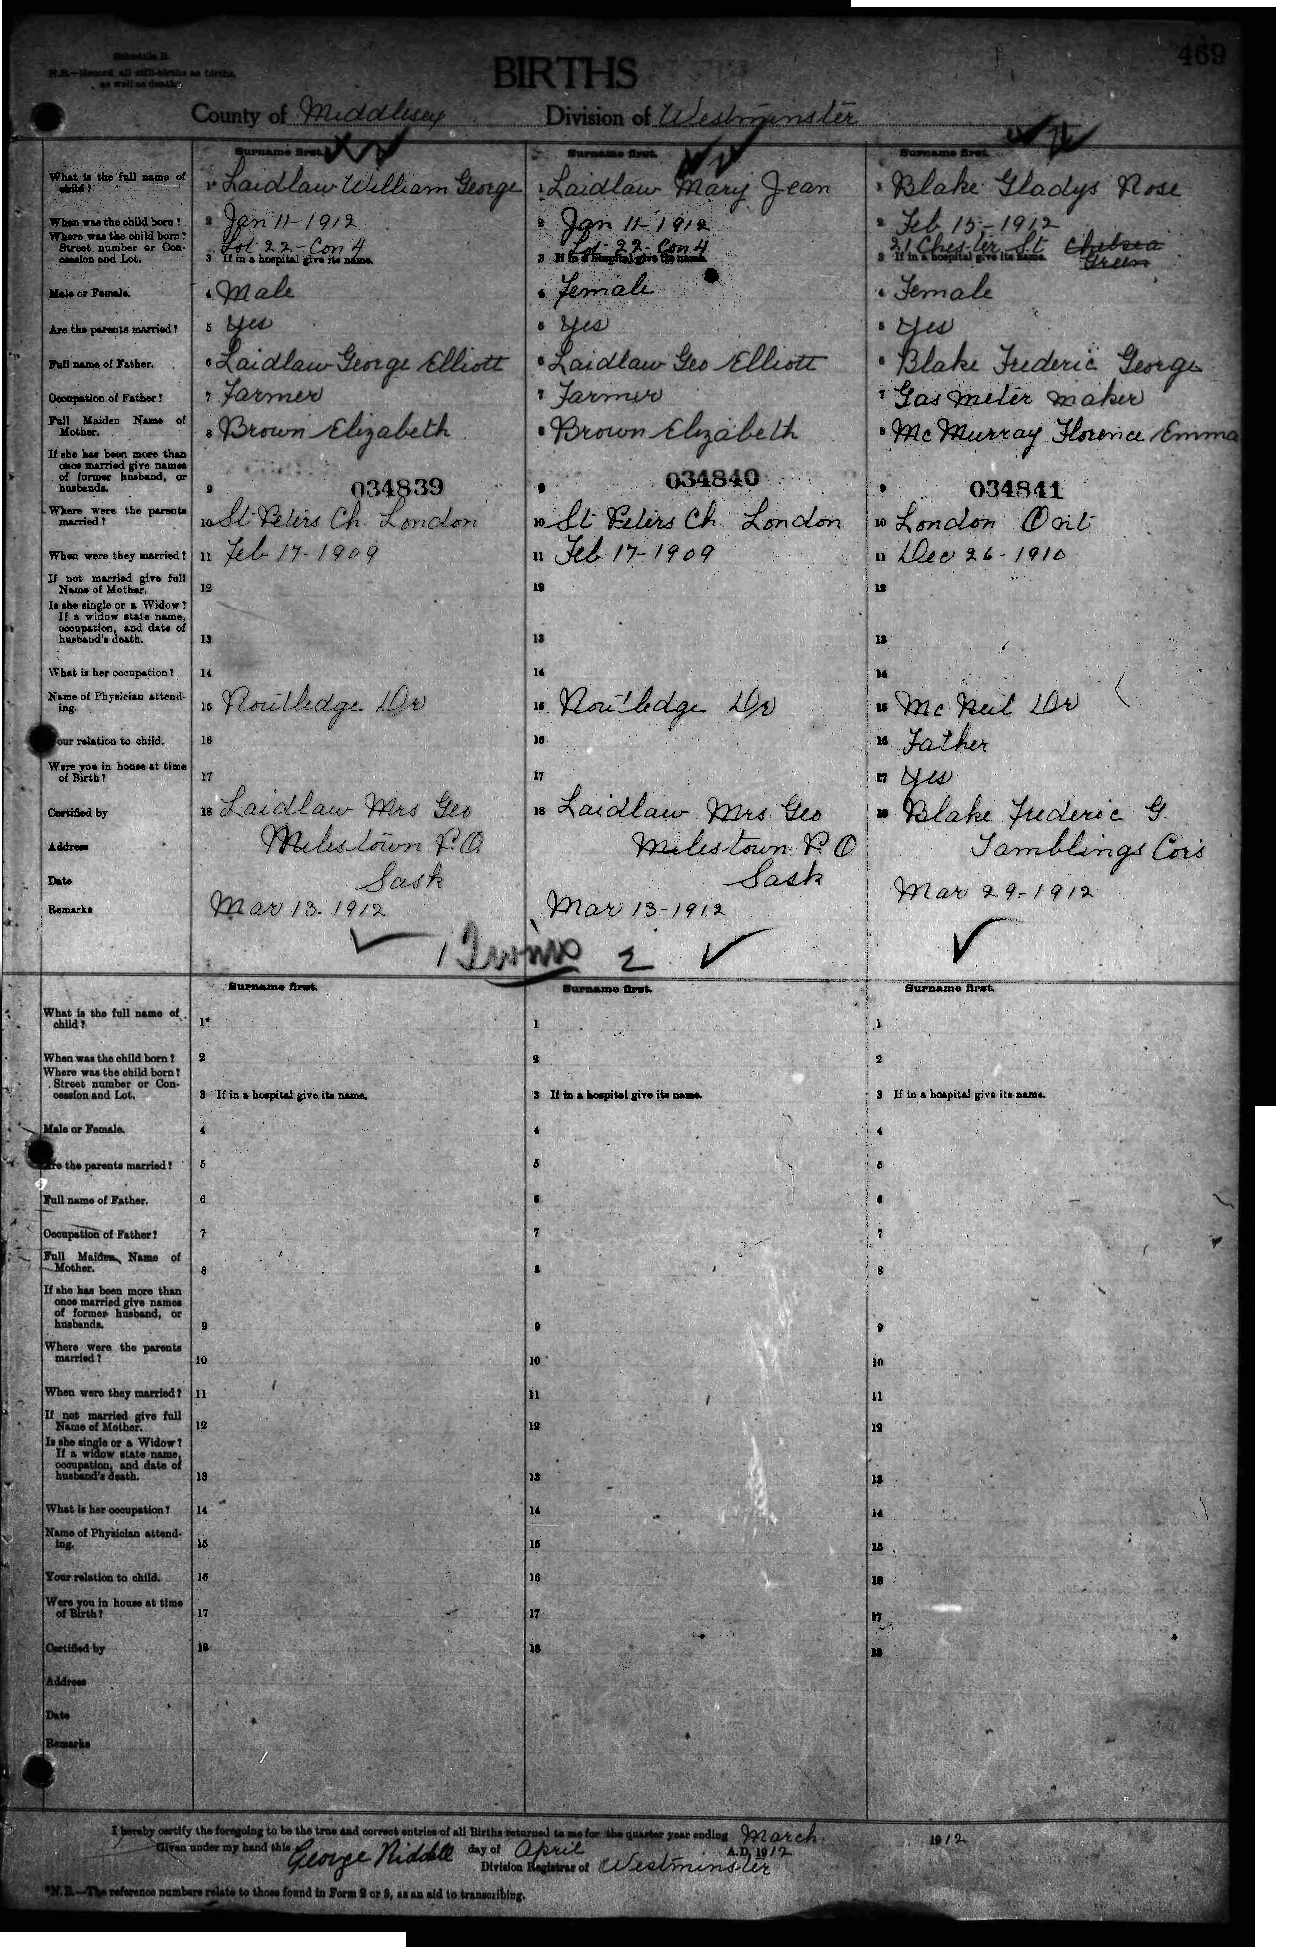 Schedule B.
N.B.—Record all still-births as births,
as well as deaths.
469
BIRTHS
County of Middlesex Division of Westminster
Surname first. Surname first. Surname first.
What is the full name of child? 1 Laidlaw William George 1 Laidlaw Mary Jean 1 Blake Gladys Rose
When was the child born? 2 Jan 11-1912 2 Jan 11-1912 2 Feb 15-1912
Where was the child born? Street number or Concession and Lot. Lot 22-Con 4 Lot 22-Con 4 21 Chester St Chelsea Green
3 If in a hospital give its name. 3 If in a hospital give its name. 3 If in a hospital give its name.
Male or Female. 4 Male 4 Female 4 Female
Are the parents married? 5 Yes 5 Yes 5 Yes
Full name of Father. 6 Laidlaw George Elliott 6 Laidlaw Geo Elliott 6 Blake Frederic George
Occupation of Father? 7 Farmer 7 Farmer 7 Gas meter maker
Full Maiden Name of Mother. 8 Brown Elizabeth 8 Brown Elizabeth 8 McMurray Florence Emma
If she has been more than once married give names of former husband, or husbands. 9 034839 9 034840 9 034841
Where were the parents married? 10 St Peters Ch London 10 St Peters Ch London 10 London Ont
When were they married? 11 Feb 17-1909 11 Feb 17-1909 11 Dec 26-1910
If not married give full Name of Mother. 12 12 12
Is she single or a Widow? If a widow state name, occupation, and date of husband's death. 13 13 13
What is her occupation? 14 14 14
Name of Physician attending. 15 Routledge Dr 15 Routledge Dr 15 McNeil Dr
Your relation to child. 16 16 16 Father
Were you in house at time of Birth? 17 17 17 Yes
Certified by 18 Laidlaw Mrs Geo 18 Laidlaw Mrs Geo 18 Blake Frederic G.
Address Milestown P.O Milestown P.O Tamblings Cors
Sask Sask
Date Mar 13-1912 Mar 13-1912 Mar 29-1912
Remarks
1 Twins 2
Surname first. Surname first. Surname first.
What is the full name of child? 1* 1 1
When was the child born? 2 2 2
Where was the child born? Street number or Concession and Lot. 3 If in a hospital give its name. 3 If in a hospital give its name. 3 If in a hospital give its name.
Male or Female. 4 4 4
Are the parents married? 5 5 5
Full name of Father. 6 6 6
Occupation of Father? 7 7 7
Full Maiden Name of Mother. 8 8 8
If she has been more than once married give names of former husband, or husbands. 9 9 9
Where were the parents married? 10 10 10
When were they married? 11 11 11
If not married give full Name of Mother. 12 12 12
Is she single or a Widow? If a widow state name, occupation, and date of husband's death. 13 13 13
What is her occupation? 14 14 14
Name of Physician attending. 15 15 15
Your relation to child. 16 16 16
Were you in house at time of Birth? 17 17 17
Certified by 18 18 18
Address
Date
Remarks
I hereby certify the foregoing to be the true and correct entries of all Births returned to me for the quarter year ending March 1912
Given under my hand this day of April A.D. 1912
George Riddell Division Registrar of Westminster
*N.B.—The reference numbers relate to those found in Form 2 or 3, as an aid to transcribing.